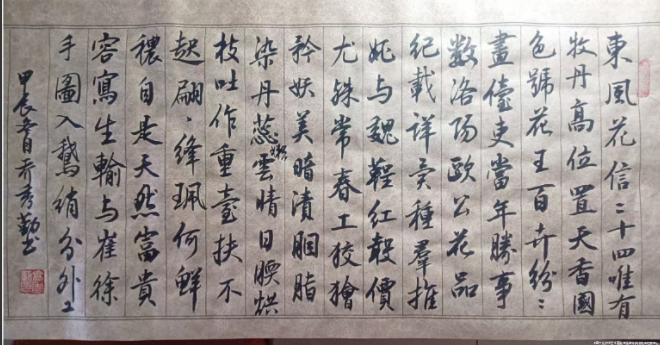 東風花信二十四唯有
牡丹高位置天香國
色號花王百卉紛〻
盡儓吏當年勝事
數洛陽歐公花品
紀載詳異種群推
姚與魏鞓紅聲價
尤殊常春工狡獪
矜妖美暗漬胭脂
染丹蕊嫩雲晴日暖烘
枝吐作重臺扶不
起翩〻絳珮何鮮
穠自是天然富貴
容寫生輸與崔徐
手圖入鵝綃分外工
甲辰春月齊秀勤書